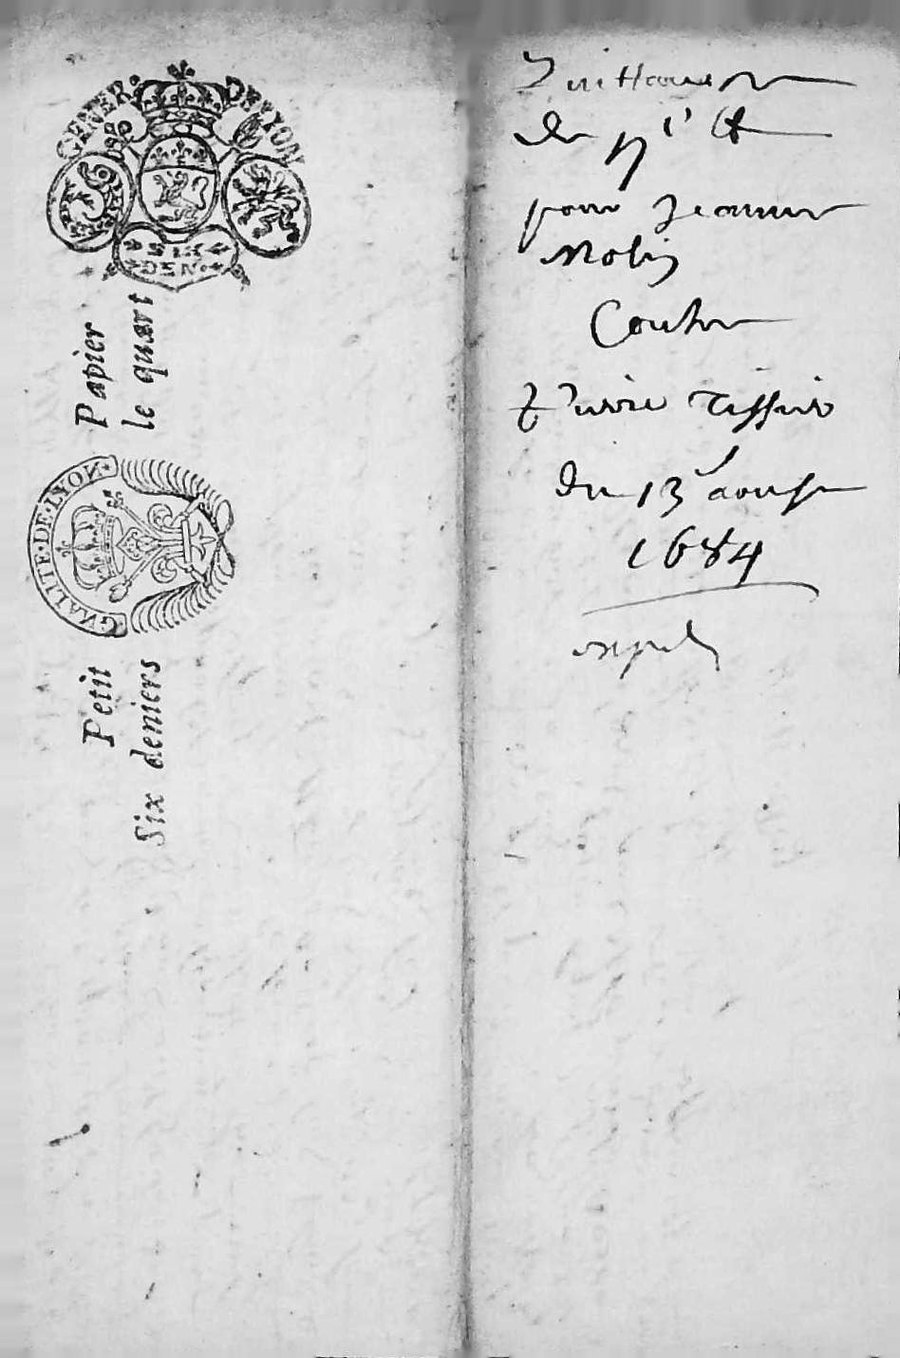 GENER. DE LYON
SIX
DEN.
Papier
le quart
GNALITE·DE·LYON·
Petit
Six deniers
Quittance
de
pour Jeanne
Nobis
Contre
Pierre Tissier
du 13 aoust
1684